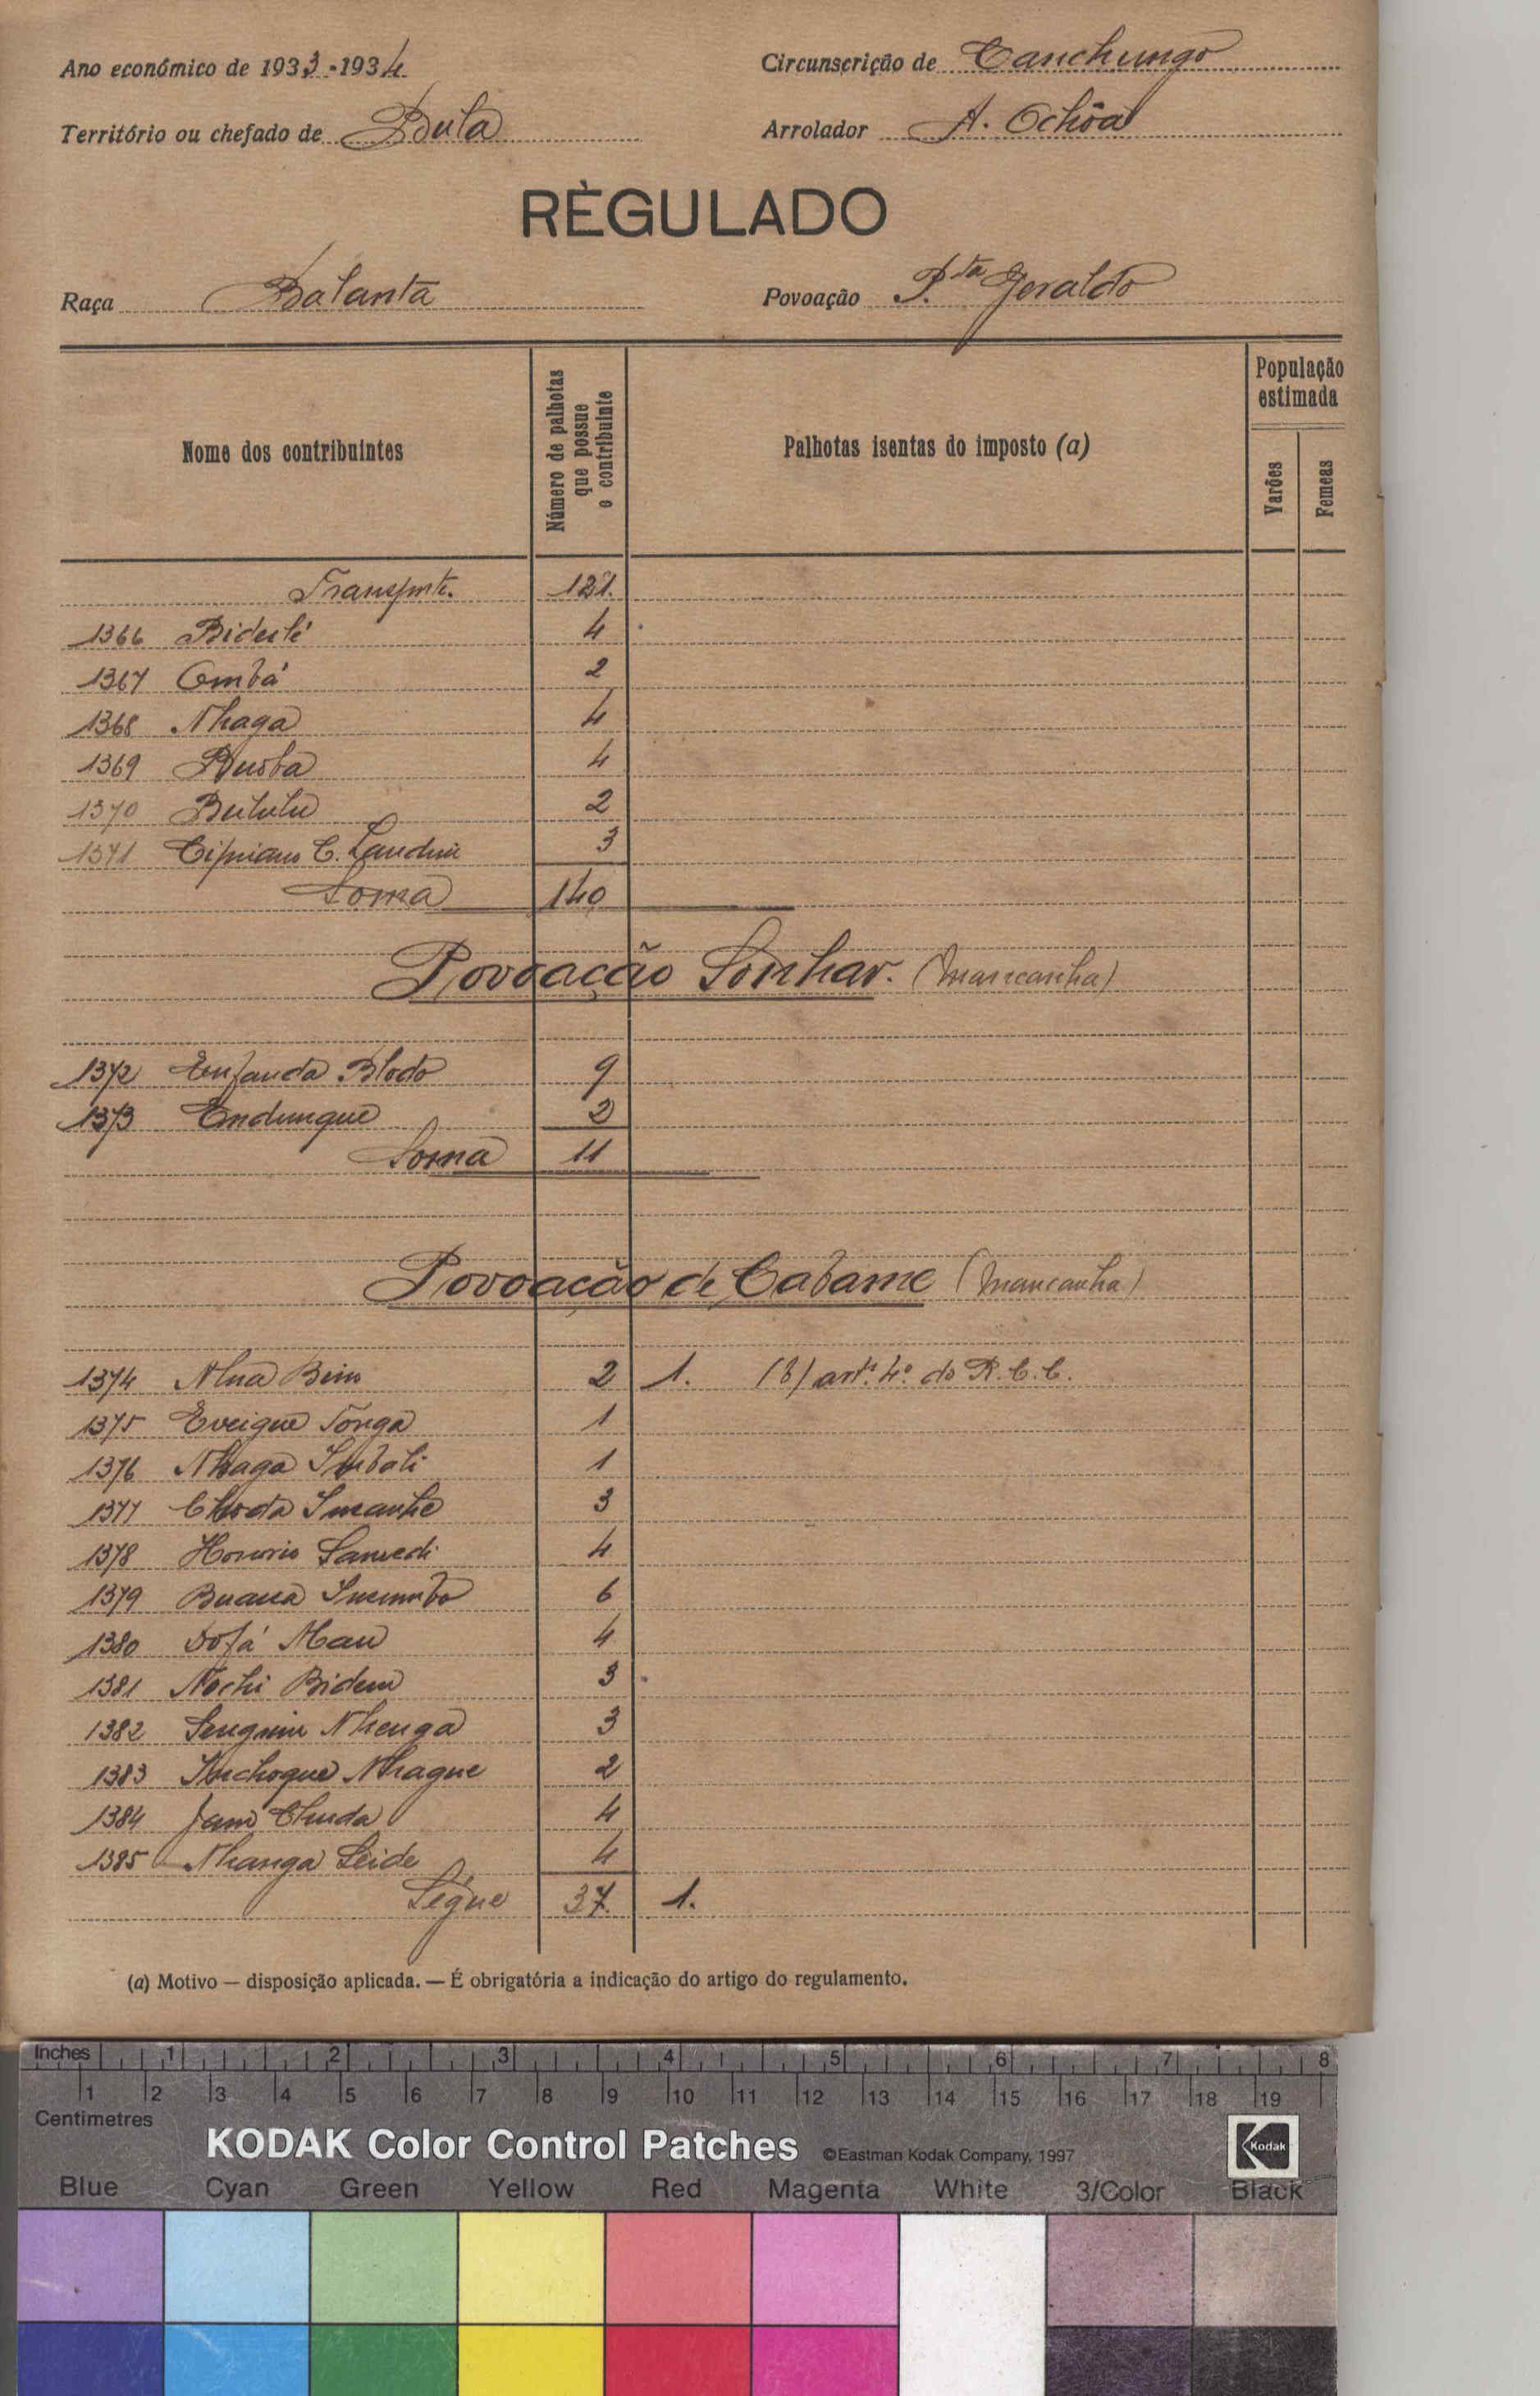 Ano económico de 1933-1934 Circunscrição de Canchungo
Território ou chefado de Bula Arrolador A. Ochôa
RÈGULADO
Raça Balanta Povoação P.ta Geraldo
Nome dos contribuintes Número de palhotas que possue o contribuinte Palhotas isentas do imposto (a) População estimada Varões Femeas
Transpte. 121.
1366 4
1367 Ombá 2
1368 Nhaga 4
1369 4
1370 Bululu 2
1371 Cipriano C. 3
Soma 140
Povoação Sonhar. (Mancanha)
1372 Enfanda Blodo 9
1373 Endungue 2
Soma 11
Povoação de Cabame (Mancanha)
1374 Nhua Bim 2 1. (b) artº. 4º. do R. C. C.
1375 Eveigue Tonga 1
1376 Nhaga Imbali 1
1377 3
1378 Honorio 4
1379 6
1380 Dofá Mau 4
1381 Nochi Bidem 3
1382 Nhenga 3
1383 Inchoque Nhague 2
1384 Jamé Chuda 4
1385 Nhanga Seide 4
Ségue 37. 1.
(a) Motivo — disposição aplicada. — É obrigatória a indicação do artigo do regulamento.
Inches 1 2 3 4 5 6 7 8
1 2 3 4 5 6 7 8 9 10 11 12 13 14 15 16 17 18 19
Centimetres
KODAK Color Control Patches ©Eastman Kodak Company, 1997 Kodak
Blue Cyan Green Yellow Red Magenta White 3/Color Black